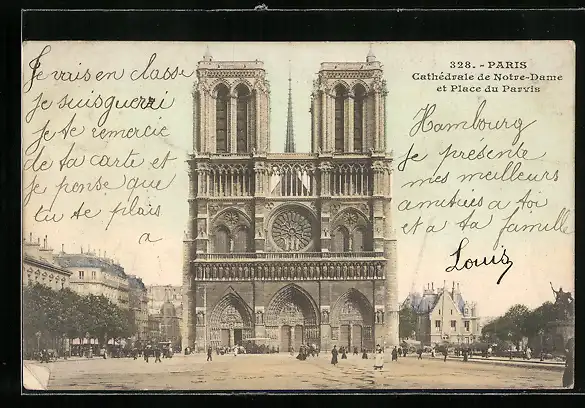 328. - PARIS
Cathédrale de Notre-Dame
et Place du Parvis
Je vais en classe
Je suis guerri
Je te remercie
de ta carte et
Je pense que
tu te plais
a
Hambourg
Je présente
mes meilleurs
amitiés a toi
et a ta famille
Louis